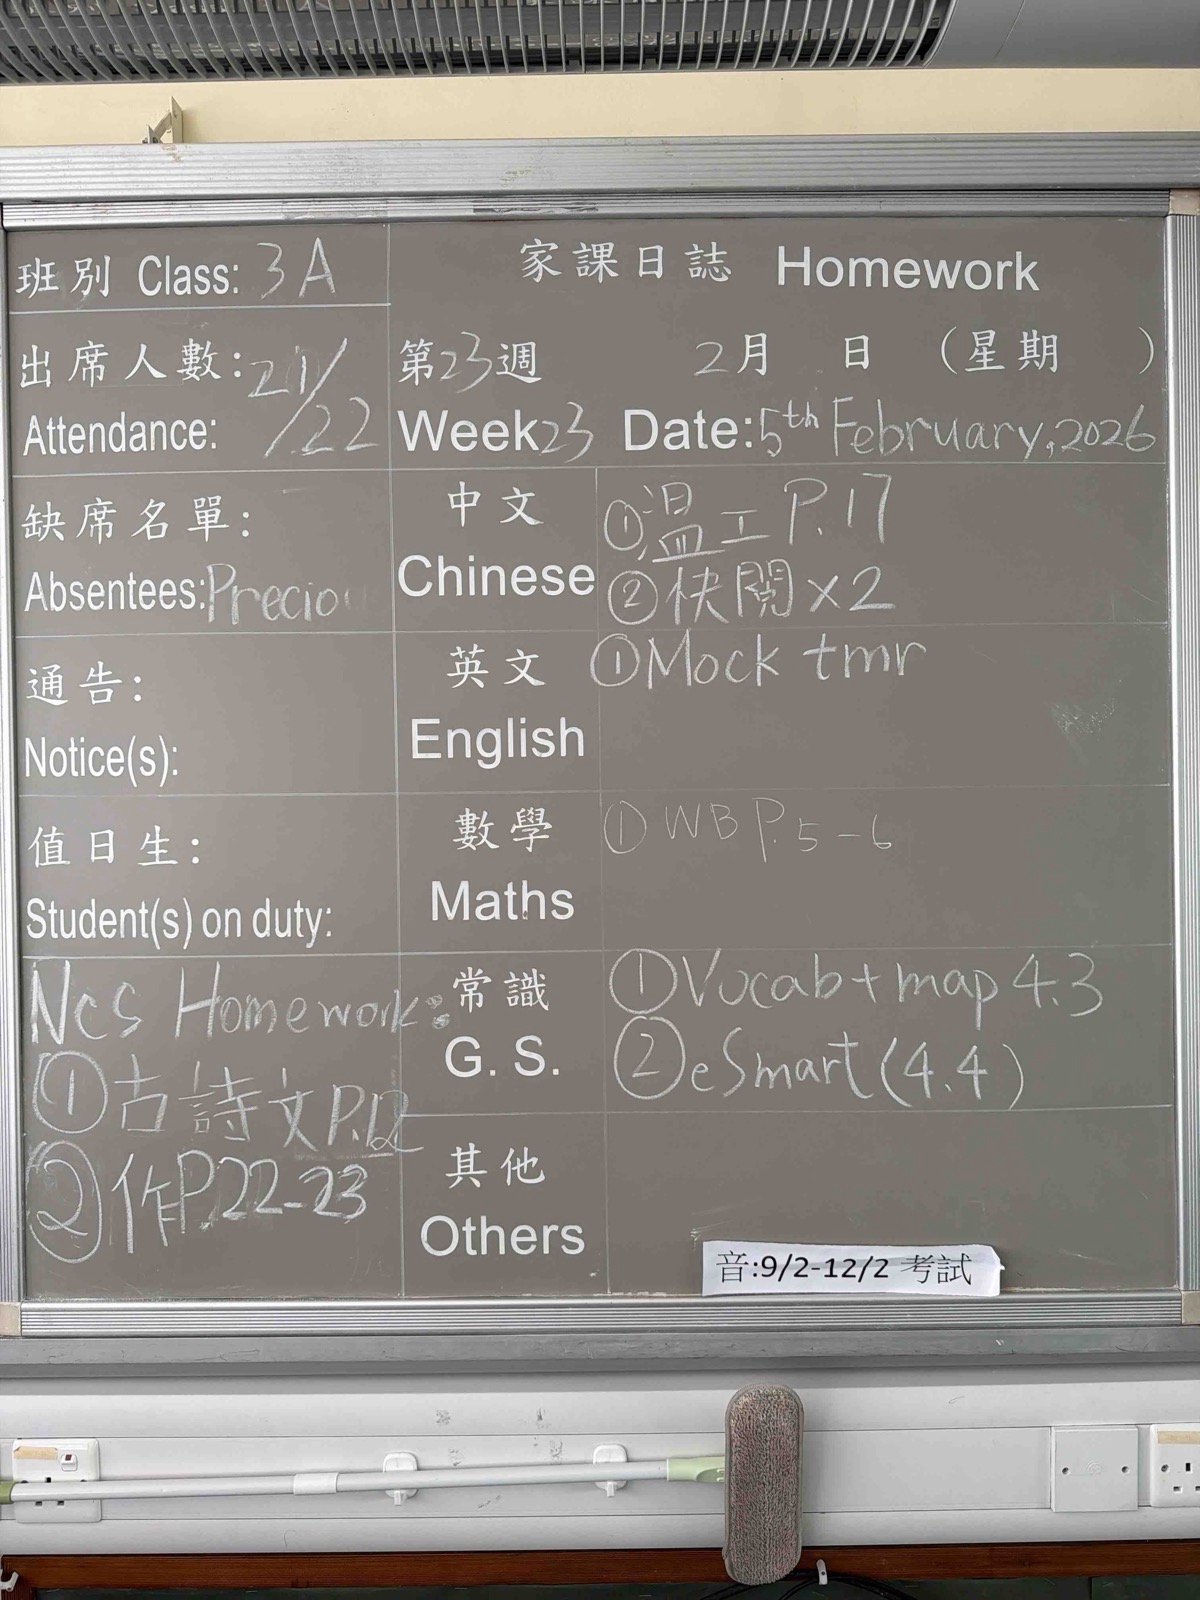 班別 Class: 3A
家課日誌 Homework
出席人數: 21/
Attendance: /22
第23週 2月 日 （星期 ）
Week23 Date: 5th February, 2026
缺席名單:
Absentees: Precio
中文
Chinese
①温工 P.17
②快閱 x2
通告:
Notice(s):
英文
English
①Mock tmr
值日生:
Student(s) on duty:
數學
Maths
① WB P.5-6
Ncs Homework:
①古詩文P.12
②作P.22-23
常識
G. S.
①Vocab+map 4.3
②eSmart(4.4)
其他
Others
音:9/2-12/2 考試